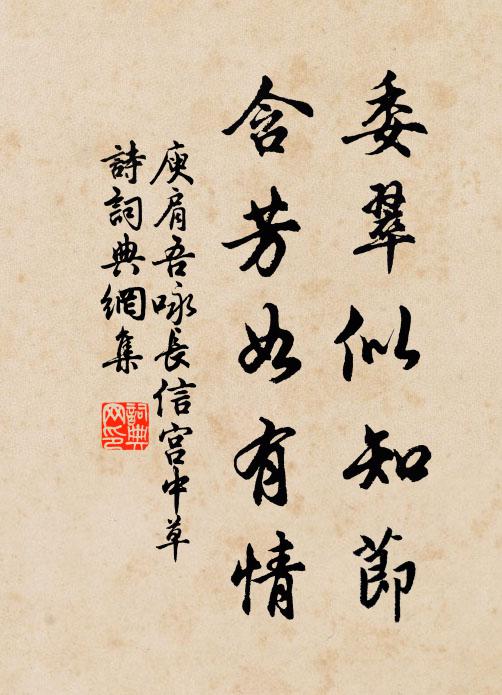 委翠似知節
含芳如有情
庾肩吾咏長信宫中草
詩詞典網集
詞典网印